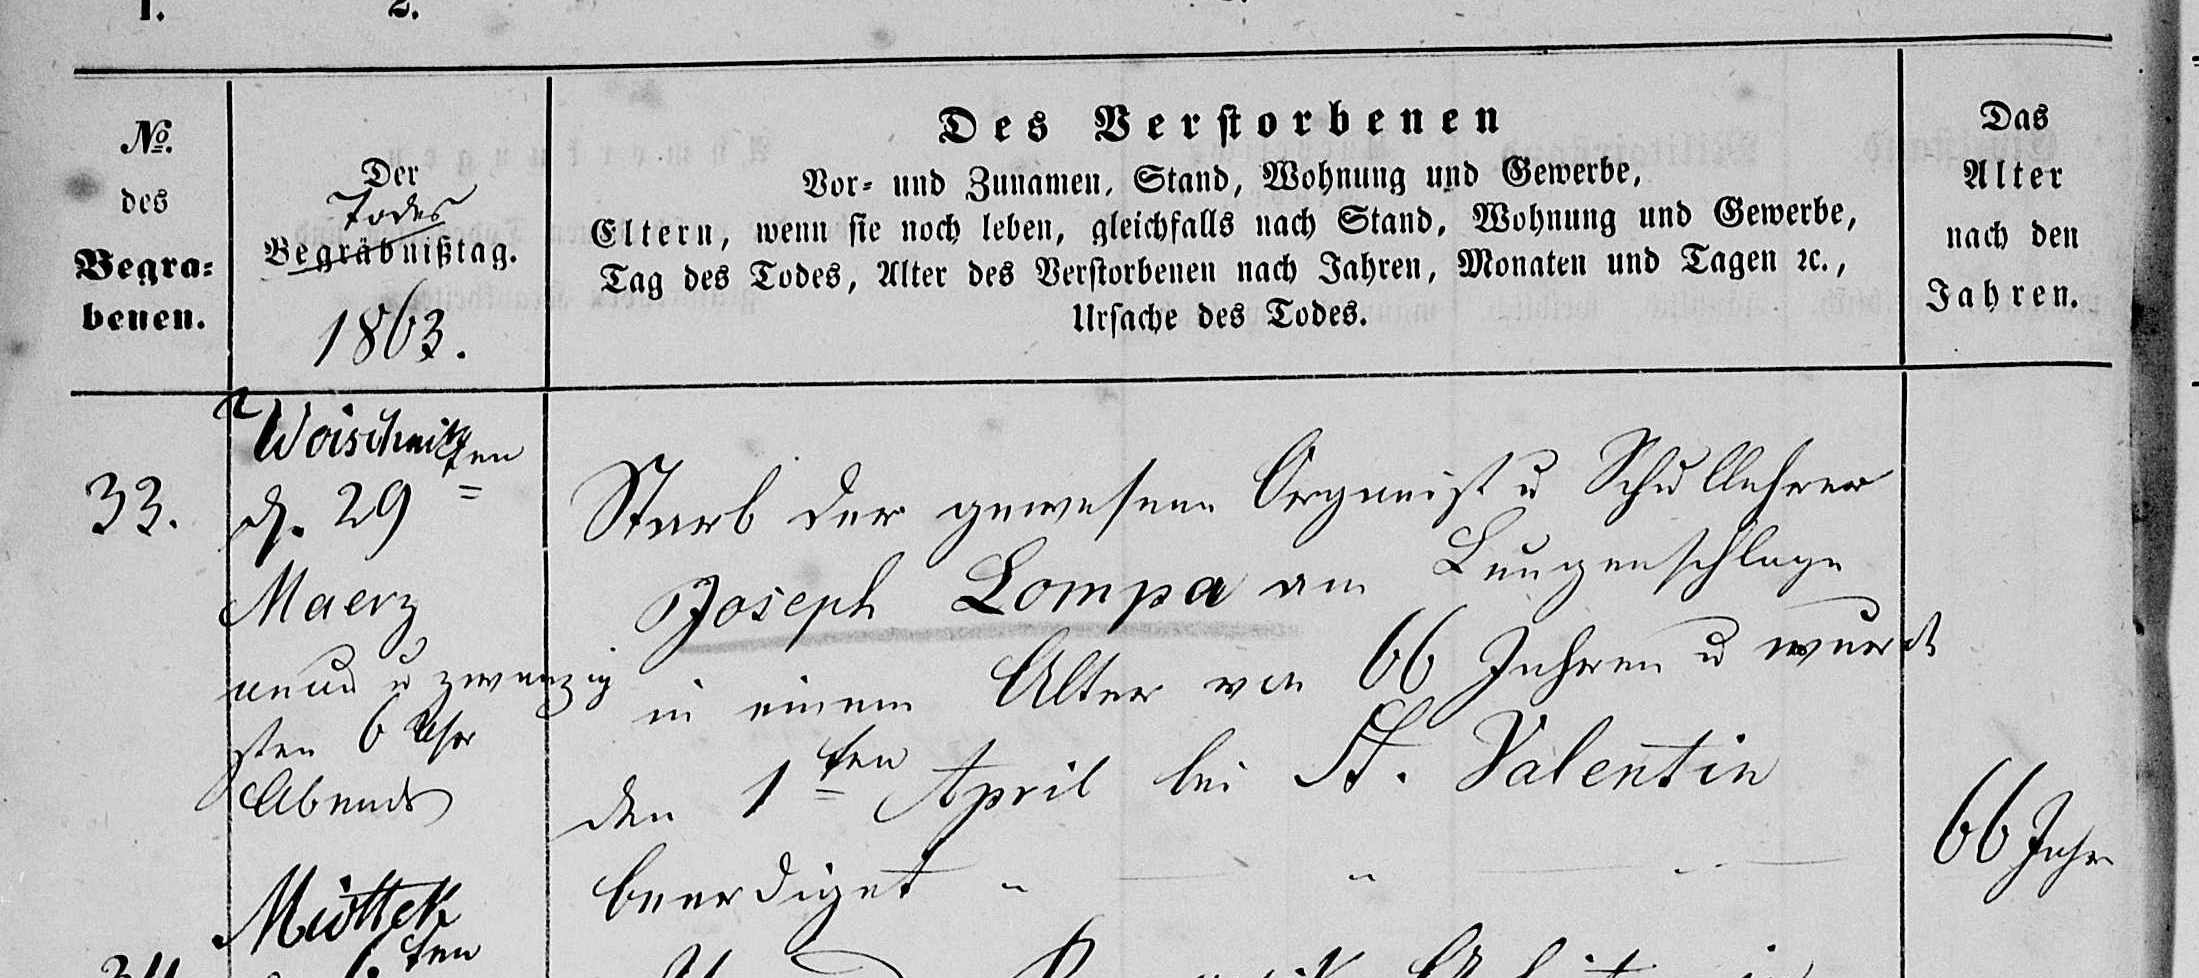 1.
2.
No.
des
Begra-
benen.
Der
Todes
Begräbnißtag.
1863.
Des Verstorbenen
Vor- und Zunamen, Stand, Wohnung und Gewerbe,
Eltern, wenn sie noch leben, gleichfalls nach Stand, Wohnung und Gewerbe,
Tag des Todes, Alter des Verstorbenen nach Jahren, Monaten und Tagen ꝛc.,
Ursache des Todes.
Das
Alter
nach den
Jahren.
33.
Woischnik
d. 29ten
Maerz
neun u zwanzig
sten 6 Uhr
Abends
Starb der gewesene Organist u Schullehrer
Joseph Lompa am Lungenschlage
in einem Alter von 66 Jahren u wurde
den 1ten April bei St. Valentin
beerdiget
66 Jahr
Miottek
34
6ten